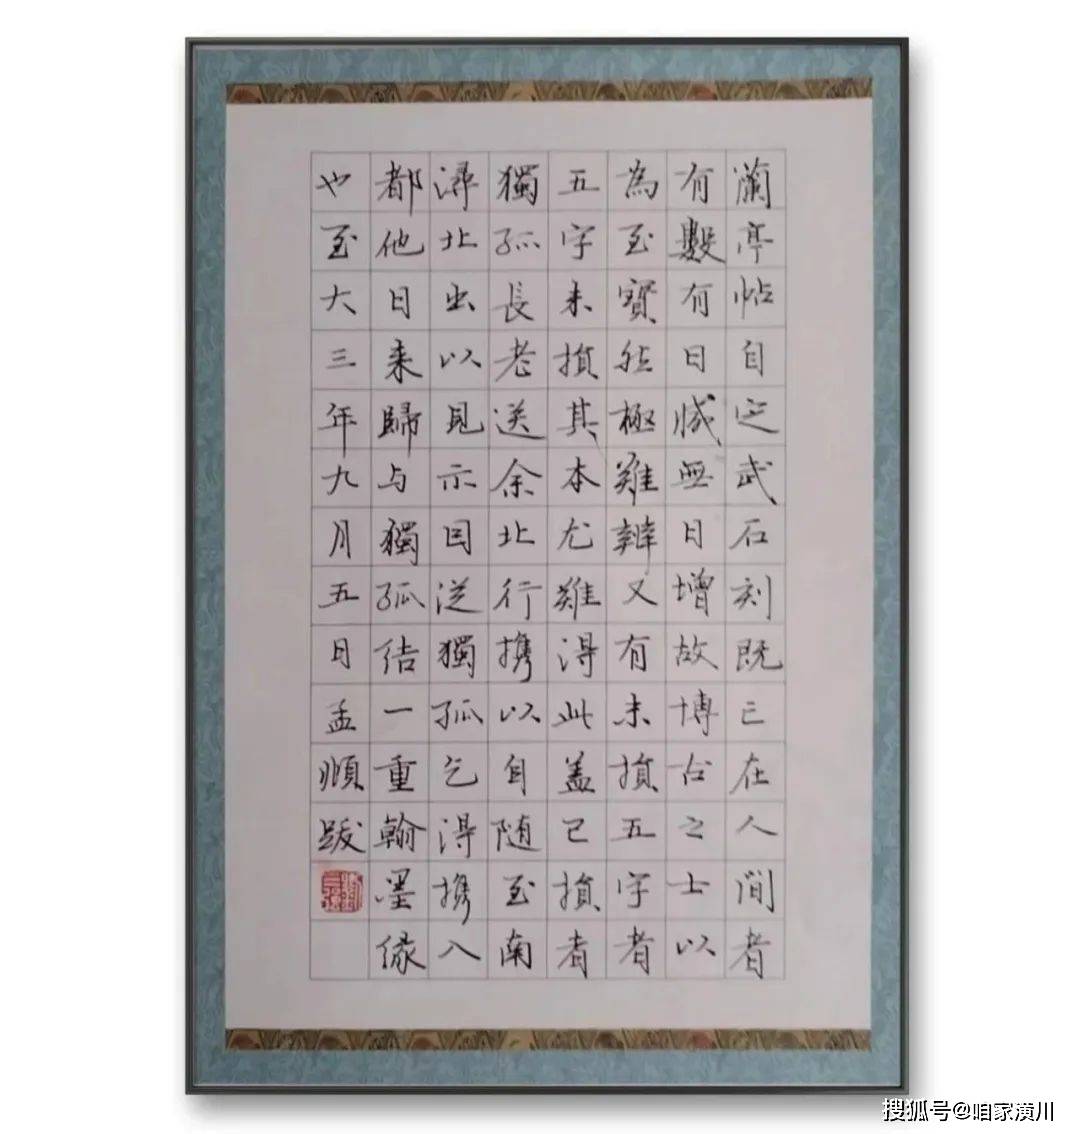 蘭亭帖自定武石刻既亡在人間者
有數有日減無日增故博古之士以
為至寶然極難辨又有未損五字者
五字未損其本尤難得此盖已損者
獨孤長老送余北行携以自随至南
潯北出以見示因從獨孤乞得携入
都他日来歸与獨孤结一重翰墨缘
也至大三年九月五日孟頫跋
搜狐号@咱家潢川